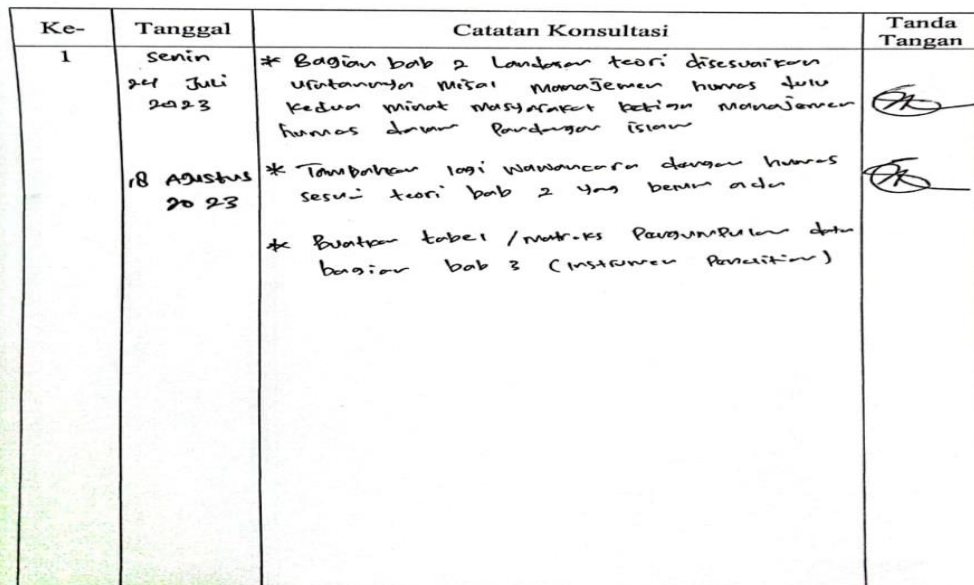 Ke- Tanggal Catatan Konsultasi Tanda Tangan
1 Senin 24 Juli 2023
* Bagian bab 2 Landasan teori disesuaikan
urutannya misal manajemen humas dulu
kedua minat masyarakat ketiga manajemen
humas dalam Pandangan islam
18 Agustus 2023
* Tambahkan lagi wawancara dengan humas
sesuai teori bab 2 yang belum ada
* Buatkan tabel / matriks Pengumpulan data
bagian bab 3 (Instrumen Penelitian)